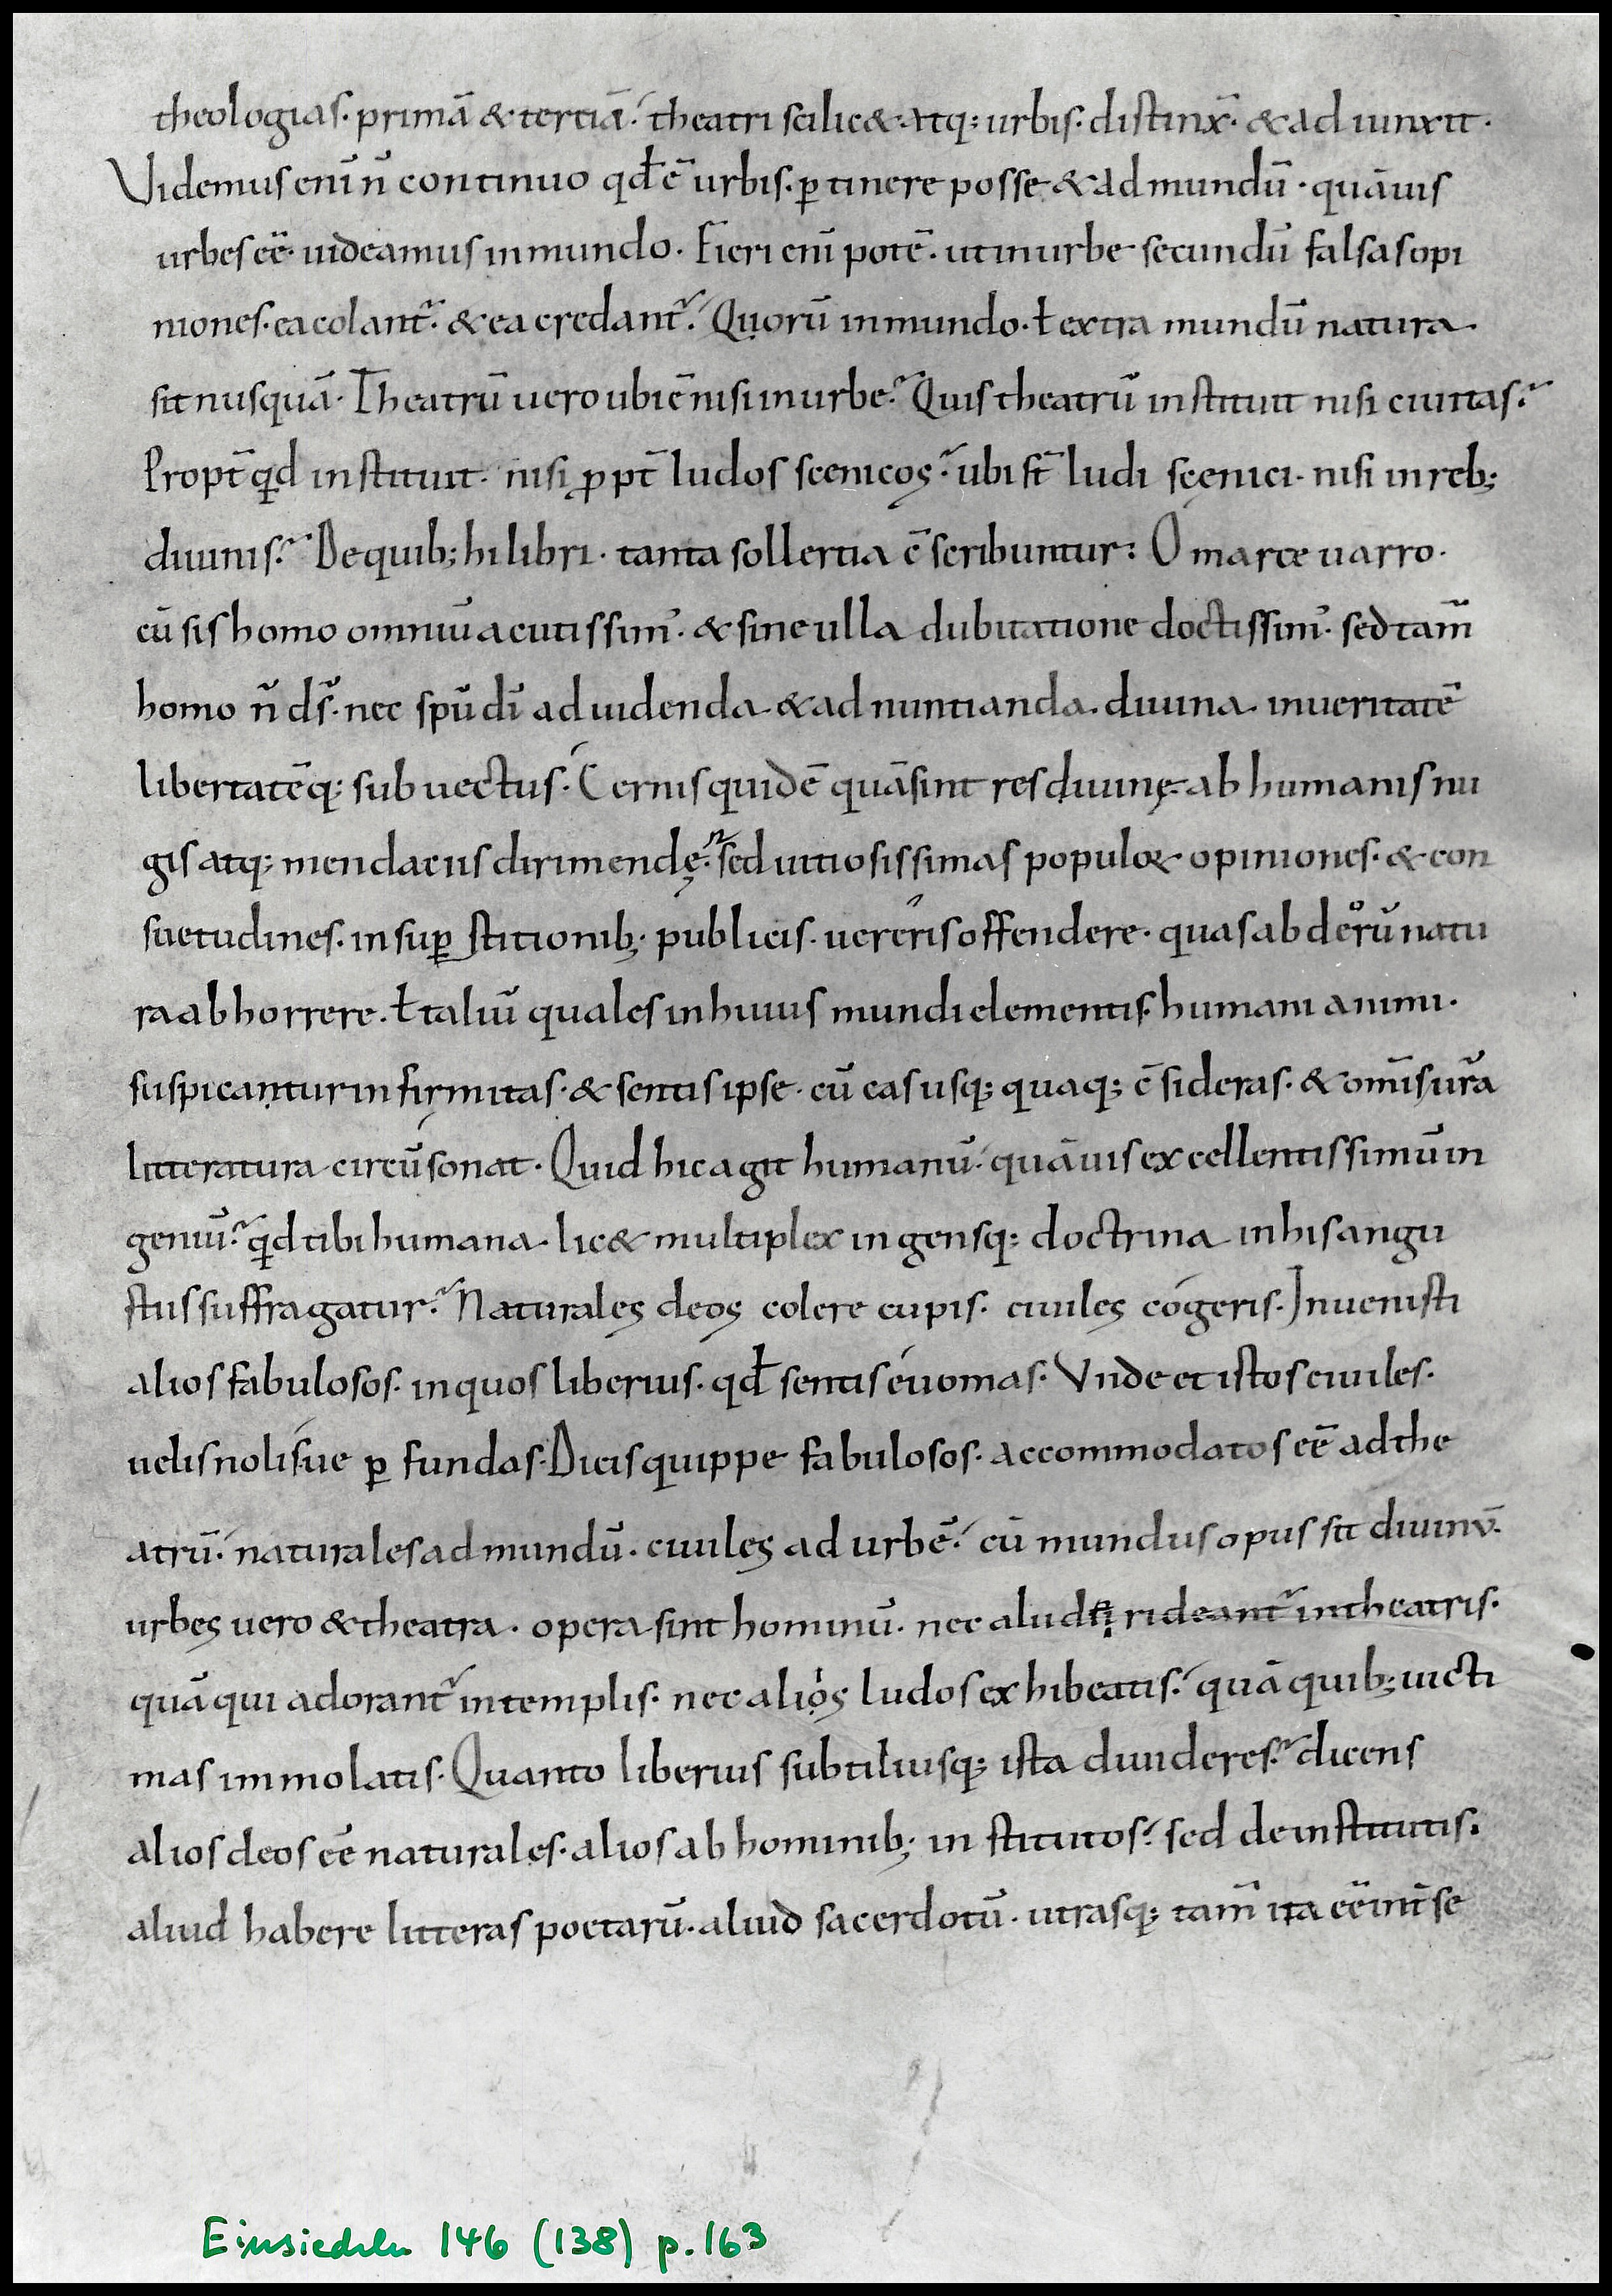 theologias. primā & tertiā. theatri scilic& atq; urbis. distinx̄. & ad iunxit.
Videmus eni᷎ n̄ continuo qđ ē urbis. ꝑtinere posse & ad mundū. quāuis
urbes eē. uideamus in mundo. Fieri eni᷎ potē. ut in urbe secundū falsas opi
niones. ea colant᷑. & ea credant᷑. Quorū in mundo. ł extra mundū natura
sit nusquā. Theatrū uero ubi ē nisi in urbe? Quis theatrū instituit nisi ciuitas?
Propt̄ qd instituit. nisi ꝓpt̄ ludos scenicos? ubi st̄ ludi scenici. nisi in reb;
diuinis? De quib; hi libri. tanta sollertia c̄scribuntur? O marce uarro.
cū sis homo omniū acutissim᷎. & sine ulla dubitatione doctissim᷎. sed tam̄
homo n̄ ds̄. nec spū dī ad uidenda & ad nuntianda. diuina in ueritatē
libertatēq; subuectus. Cernis quidē quā sint res diuinę ab humanis nu
gis atq; mendaciis dirimendę. sed uitiosissimas populoꝝ opiniones. & con
suetudines. in suꝑstitionib; publicis. uereris offendere. quas ab deorū natu
ra abhorrere. ł taliū quales in huius mundi elementis. humani animi.
suspicantur infirmitas. & sentis ipse. cū eas usq; quaq; c̄sideras. & om̄is ur̄a
litteratura circū sonat. Quid hic agit humanū. quāuis excellentissimū in
geniū? qd tibi humana. lic& multiplex ingensq; doctrina in his angu
stiis suffragatur? Naturales deos colere cupis. ciuiles cogeris. Inuenisti
alios fabulosos. in quos liberius. qđ sentis euomas. Vnde et istos ciuiles.
uelis nolis ue ꝑfundas. Dicis quippe fabulosos. accommodatos eē ad the
atrū. naturales ad mundū. ciuiles ad urbē. cū mundus opus sit diuinū.
urbes uero & theatra. opera sint hominū. nec alii dii rideant᷑ in theatris.
quā qui adorant᷑ in templis. nec alios ludos exhibeatis. quā quib; uicti
mas immolatis. Quanto liberius subtiliusq; ista diuideres? dicens
alios deos eē naturales. alios ab hominib; institutos. sed de institutis.
aliud habere litteras poetarū. aliud sacerdotū. utrasq; tam̄ ita eē int̄ se
Einsiedeln 146 (138) p. 163